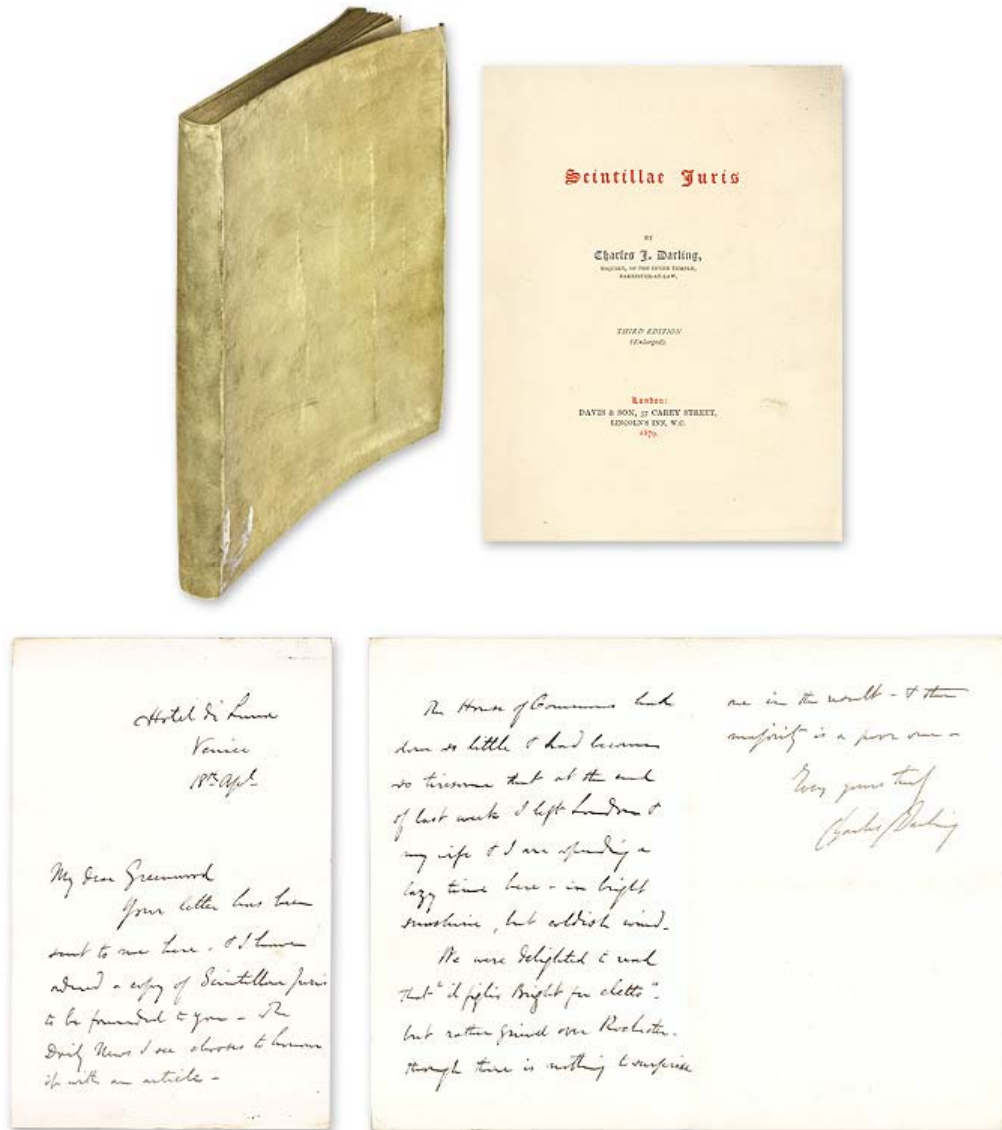 Scintillae Juris
BY
Charles J. Darling,
ESQUIRE, OF THE INNER TEMPLE,
BARRISTER-AT-LAW.
THIRD EDITION
(Enlarged).
London:
DAVIS & SON, 57 CAREY STREET,
LINCOLN'S INN, W.C.
1879.
Hotel di Luna
Venice
18th Apl.
My dear Greenwood
Your letter has been
sent to me here - & I have
ordered a copy of Scintillae Juris
to be forwarded to you - The
Daily News I see chooses to honour
it with an article -
The House of Commons had
done so little & had become
so tiresome that at the end
of last week I left London &
my wife & I are spending a
lazy time here - in bright
sunshine, but coldish wind.
We were delighted to read
that "il figlio Bright fu eletto" -
but rather grieved over Rochester -
though there is nothing to surprise
me in the result - & the
majority is a poor one -
Ever yours
Charles Darling